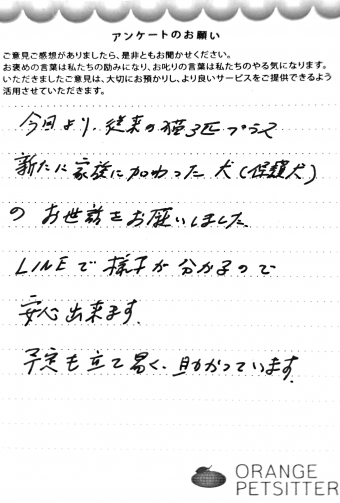 アンケートのお願い
ご意見ご感想がありましたら、是非ともお聞かせください。
お褒めの言葉は私たちの励みになり、お叱りの言葉は私たちのやる気になります。
いただきましたご意見は、大切にお預かりし、より良いサービスをご提供できるよう
活用させていただきます。
今回より、従来の猫3匹プラス
新たに家族に加わった犬(保護犬)
の お世話をお願いしました
LINEで様子が分かるので
安心出来ます。
予定も立て易く、助かっています。
ORANGE
PETSITTER